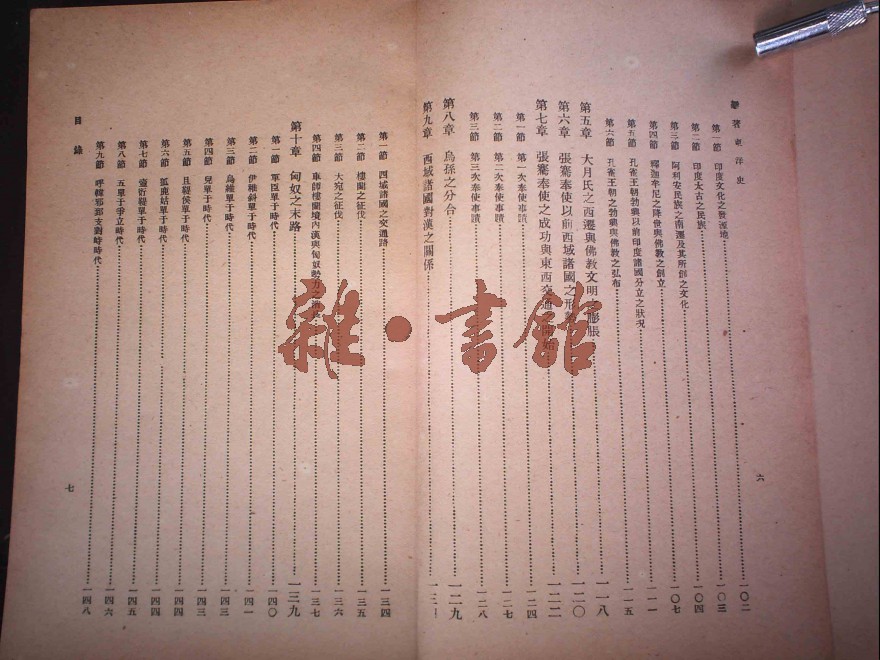 譯著東洋史
第一節 印度文化之發源地 一〇二
第二節 印度太古之民族 一〇三
第三節 阿利安民族之南遷及其所創之文化 一〇四
第四節 釋迦牟尼之降世與佛教之創立 一〇七
第五節 孔雀王朝勃興以前印度諸國分立之狀況 一一一
第六節 孔雀王朝之勃興與佛教之弘布 一一五
第五章 大月氏之西遷與佛教文明之膨脹 一一八
第六章 張騫奉使以前西域諸國之形勢 一二〇
第七章 張騫奉使之成功與東西交通之開始 一二二
第一節 第一次奉使事蹟 一二四
第二節 第二次奉使事蹟 一二七
第三節 第三次奉使事蹟 一二八
第八章 烏孫之分合 一二九
第九章 西域諸國對漢之關係 一三一
六
第一節 西域諸國之交通路 一三四
第二節 樓蘭之征伐 一三五
第三節 大宛之征伐 一三六
第四節 車師樓蘭境內漢與匈奴勢力之 一三七
第十章 匈奴之末路 一三九
第一節 軍臣單于時代 一四〇
第二節 伊稚斜單于時代 一四一
第三節 烏維單于時代 一四三
第四節 兒單于時代 一四三
第五節 且鞮侯單于時代 一四四
第六節 狐鹿姑單于時代 一四四
第七節 壺衍鞮單于時代 一四五
第八節 五單于爭立時代 一四六
第九節 呼韓邪郅支對峙時代 一四八
目錄
七
雜·書館